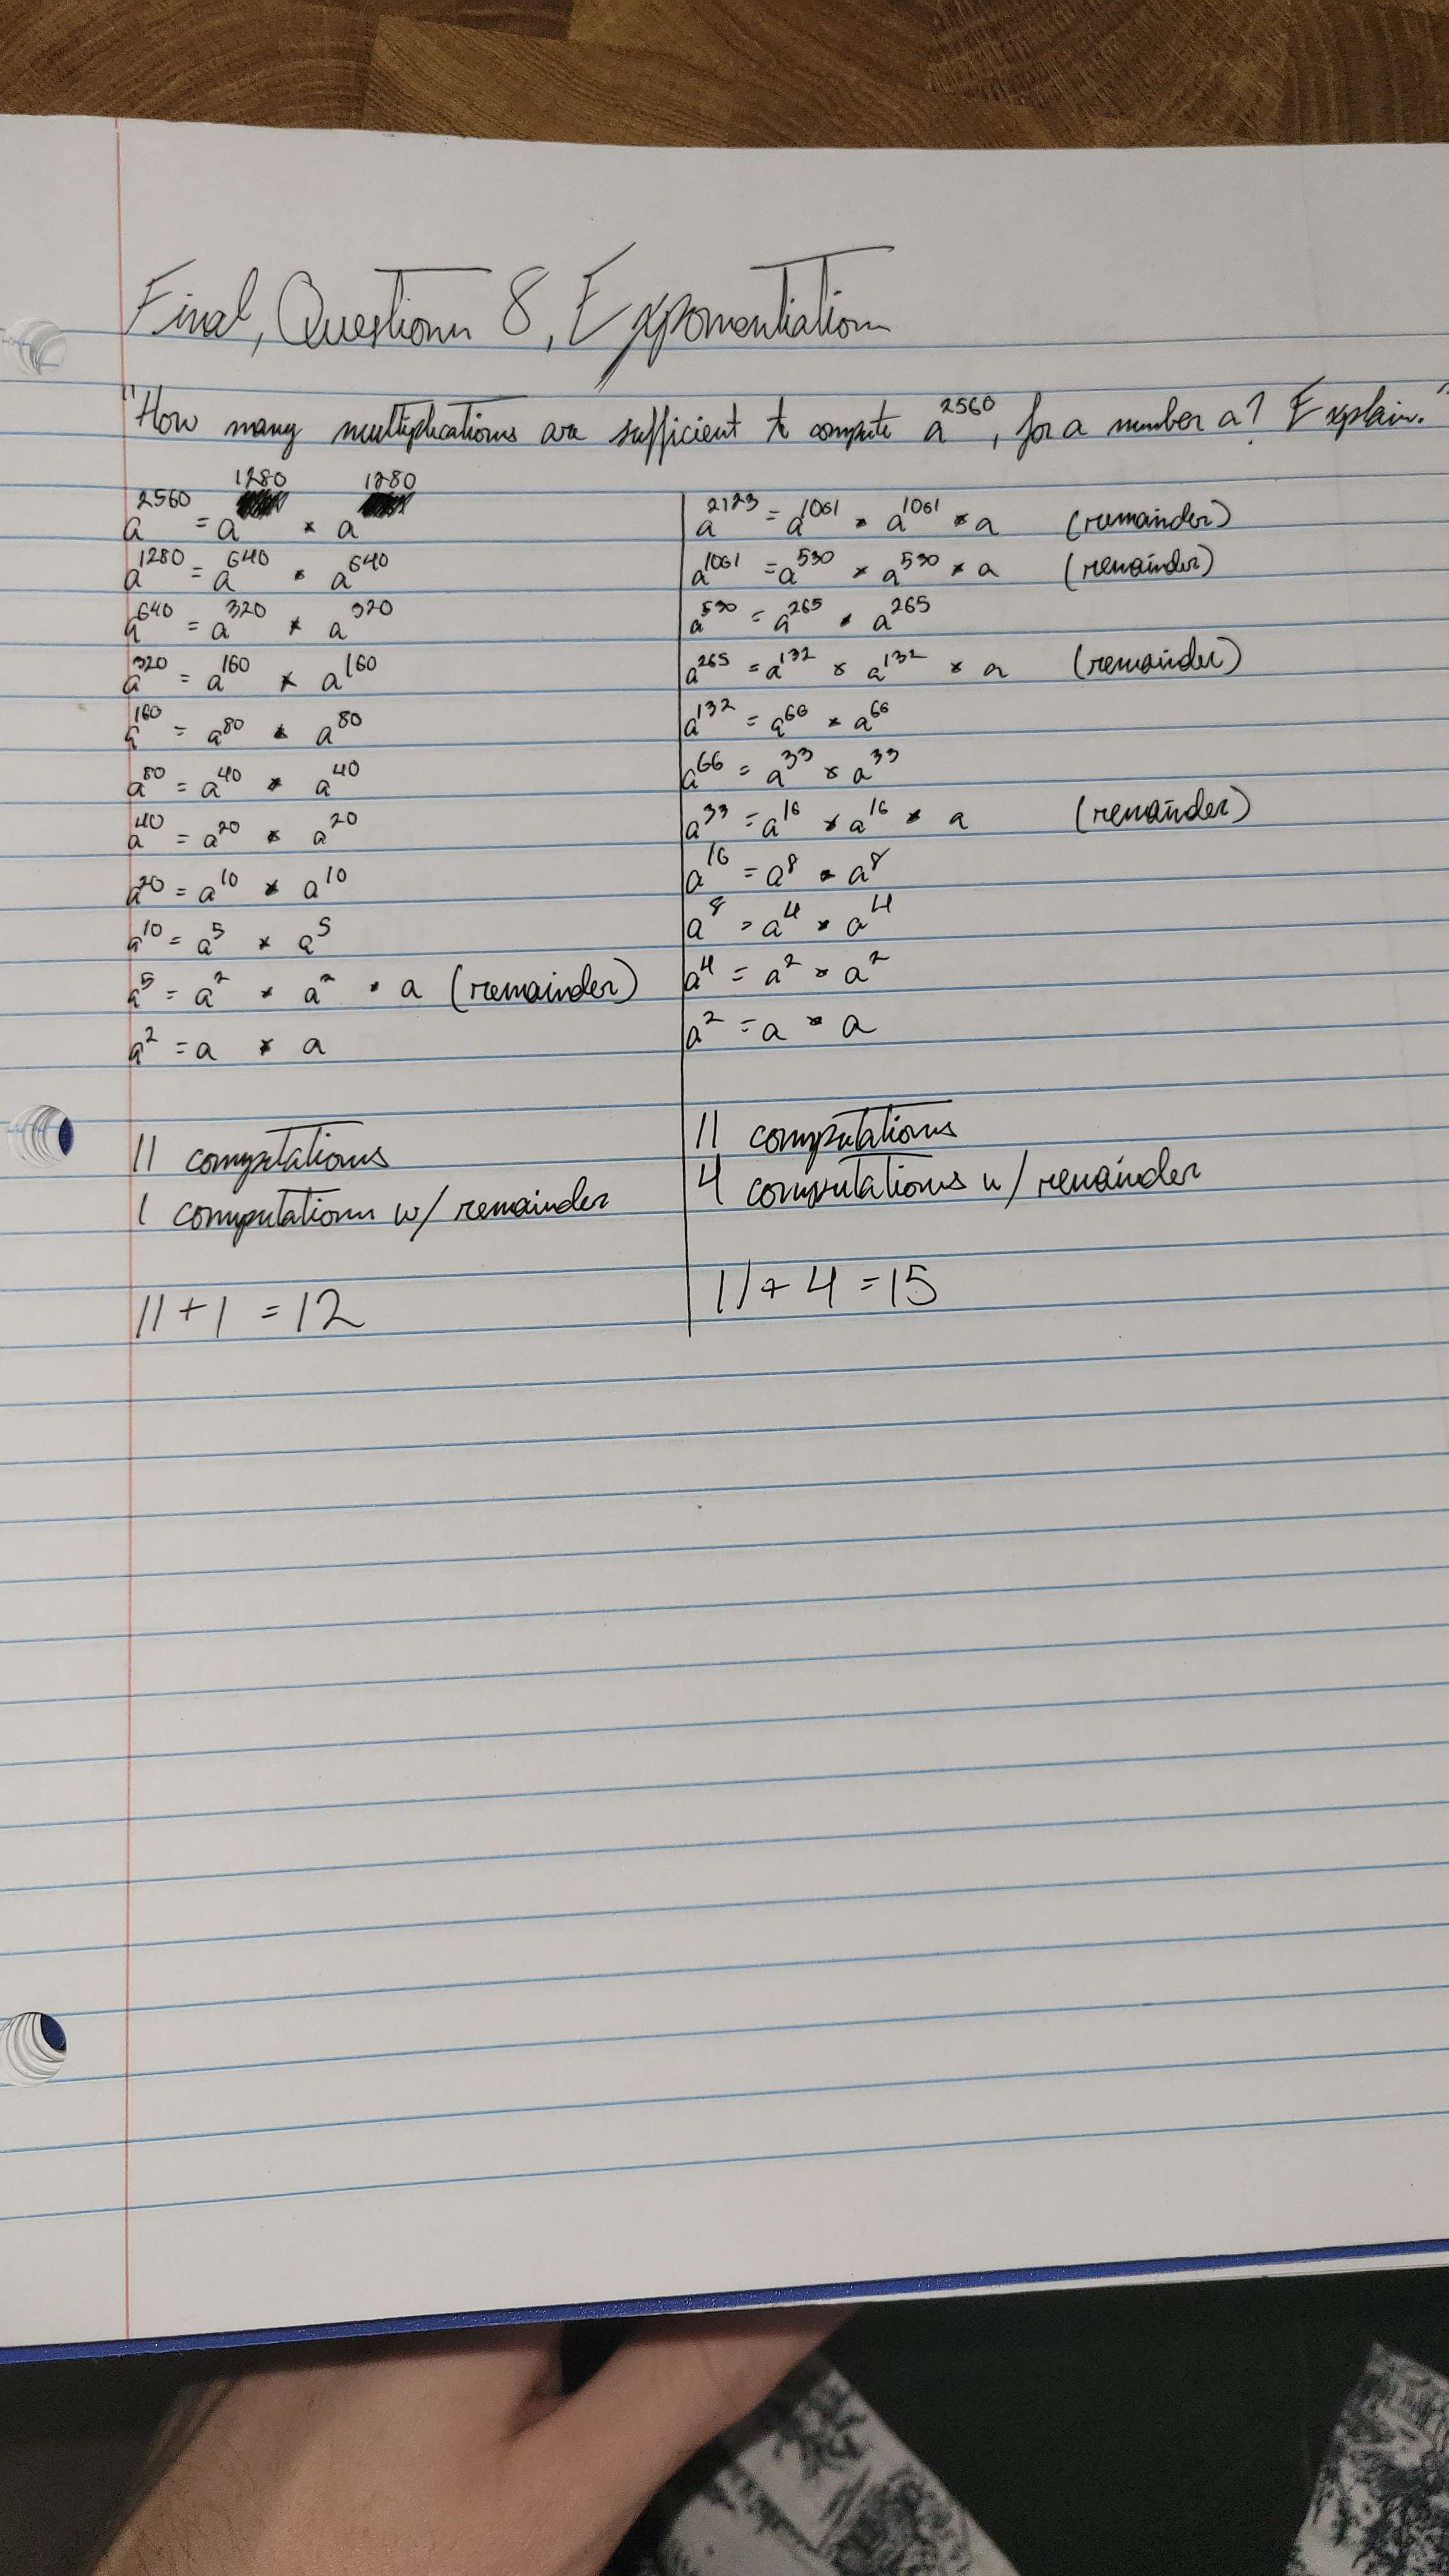 Final, Question 8, Exponentiation
"How many multiplications are sufficient to compute a^2560, for a number a? Explain."
a^2560 = a^1280 * a^1280
a^1280 = a^640 * a^640
a^640 = a^320 * a^320
a^320 = a^160 * a^160
a^160 = a^80 * a^80
a^80 = a^40 * a^40
a^40 = a^20 * a^20
a^20 = a^10 * a^10
a^10 = a^5 * a^5
a^5 = a^2 * a^2 * a (remainder)
a^2 = a * a
11 computations
1 computation w/ remainder
11 + 1 = 12
a^2123 = a^1061 * a^1061 * a (remainder)
a^1061 = a^530 * a^530 * a (remainder)
a^530 = a^265 * a^265
a^265 = a^132 * a^132 * a (remainder)
a^132 = a^66 * a^66
a^66 = a^33 * a^33
a^33 = a^16 * a^16 * a (remainder)
a^16 = a^8 * a^8
a^8 = a^4 * a^4
a^4 = a^2 * a^2
a^2 = a * a
11 computations
4 computations w/ remainder
11 + 4 = 15